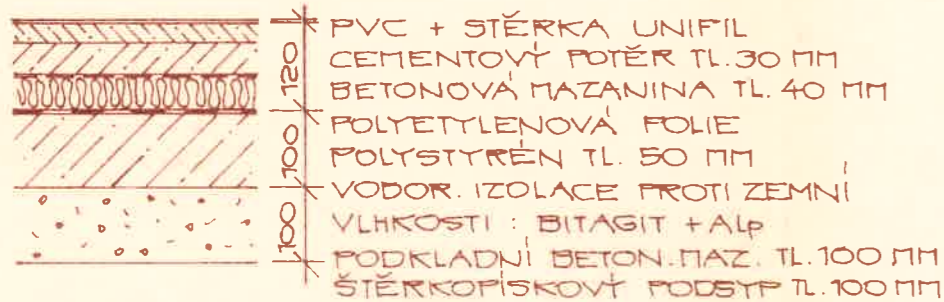 PVC + STĚRKA UNIFIL
CEMENTOVÝ POTĚR TL. 30 MM
BETONOVÁ MAZANINA TL. 40 MM
POLYETYLÉNOVÁ FOLIE
POLYSTYRÉN TL. 50 MM
VODOR. IZOLACE PROTI ZEMNÍ
VLHKOSTI : BITAGIT + ALp
PODKLADNÍ BETON. MAZ. TL. 100 MM
ŠTĚRKOPÍSKOVÝ PODSYP TL. 100 MM
120
100
100